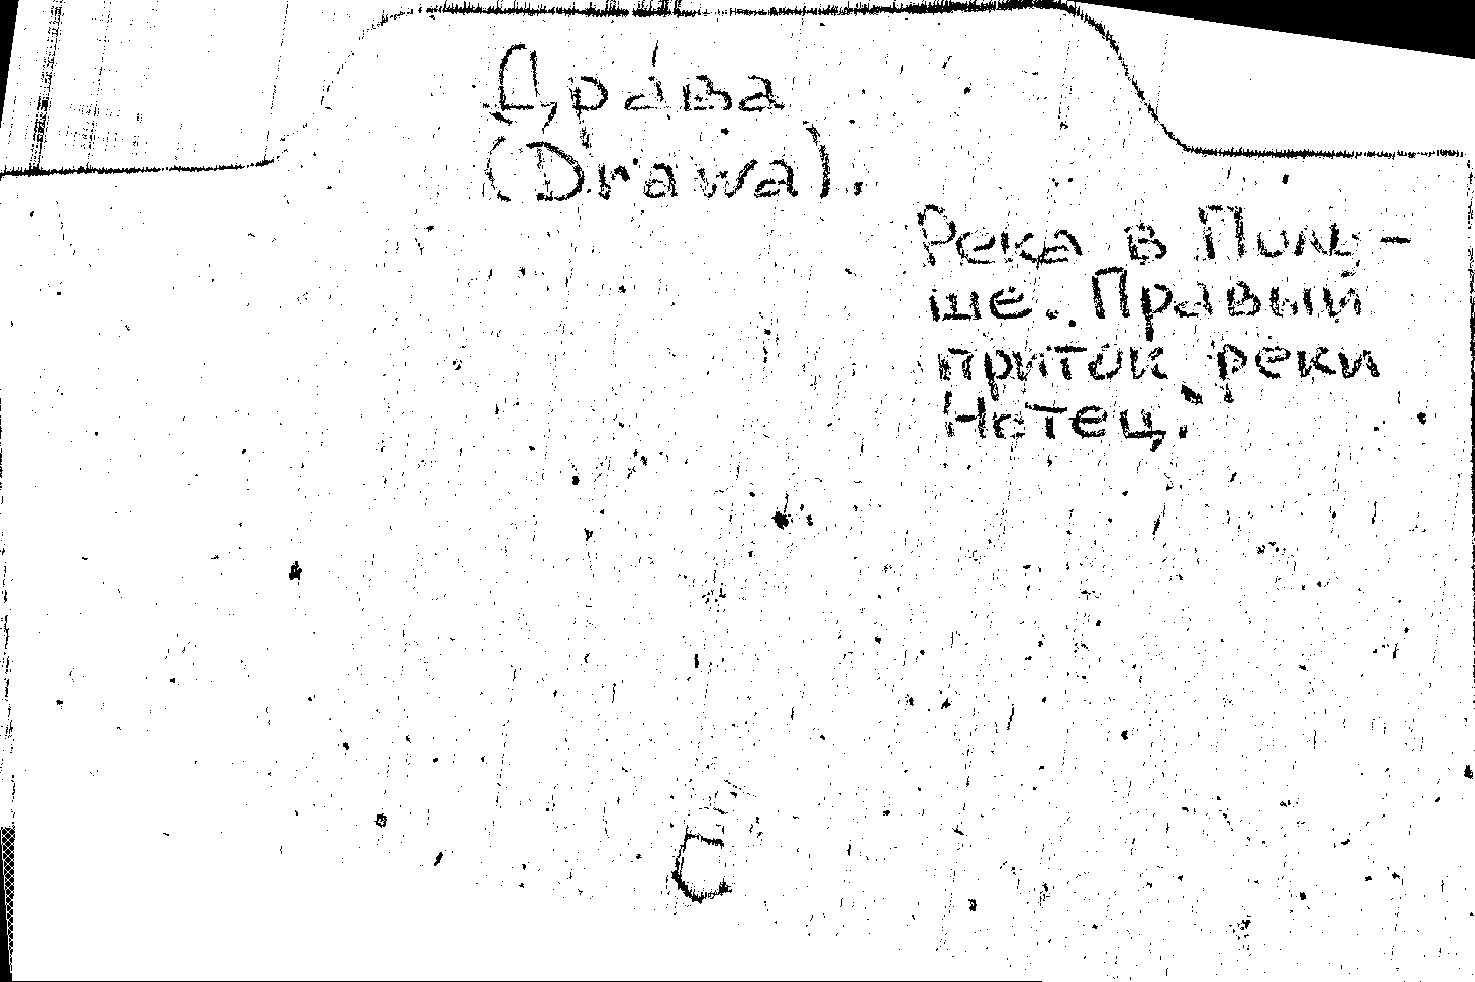 Дра́ва
(Drawa).
Река в Поль-
ше. Правый
приток реки
Нотец.